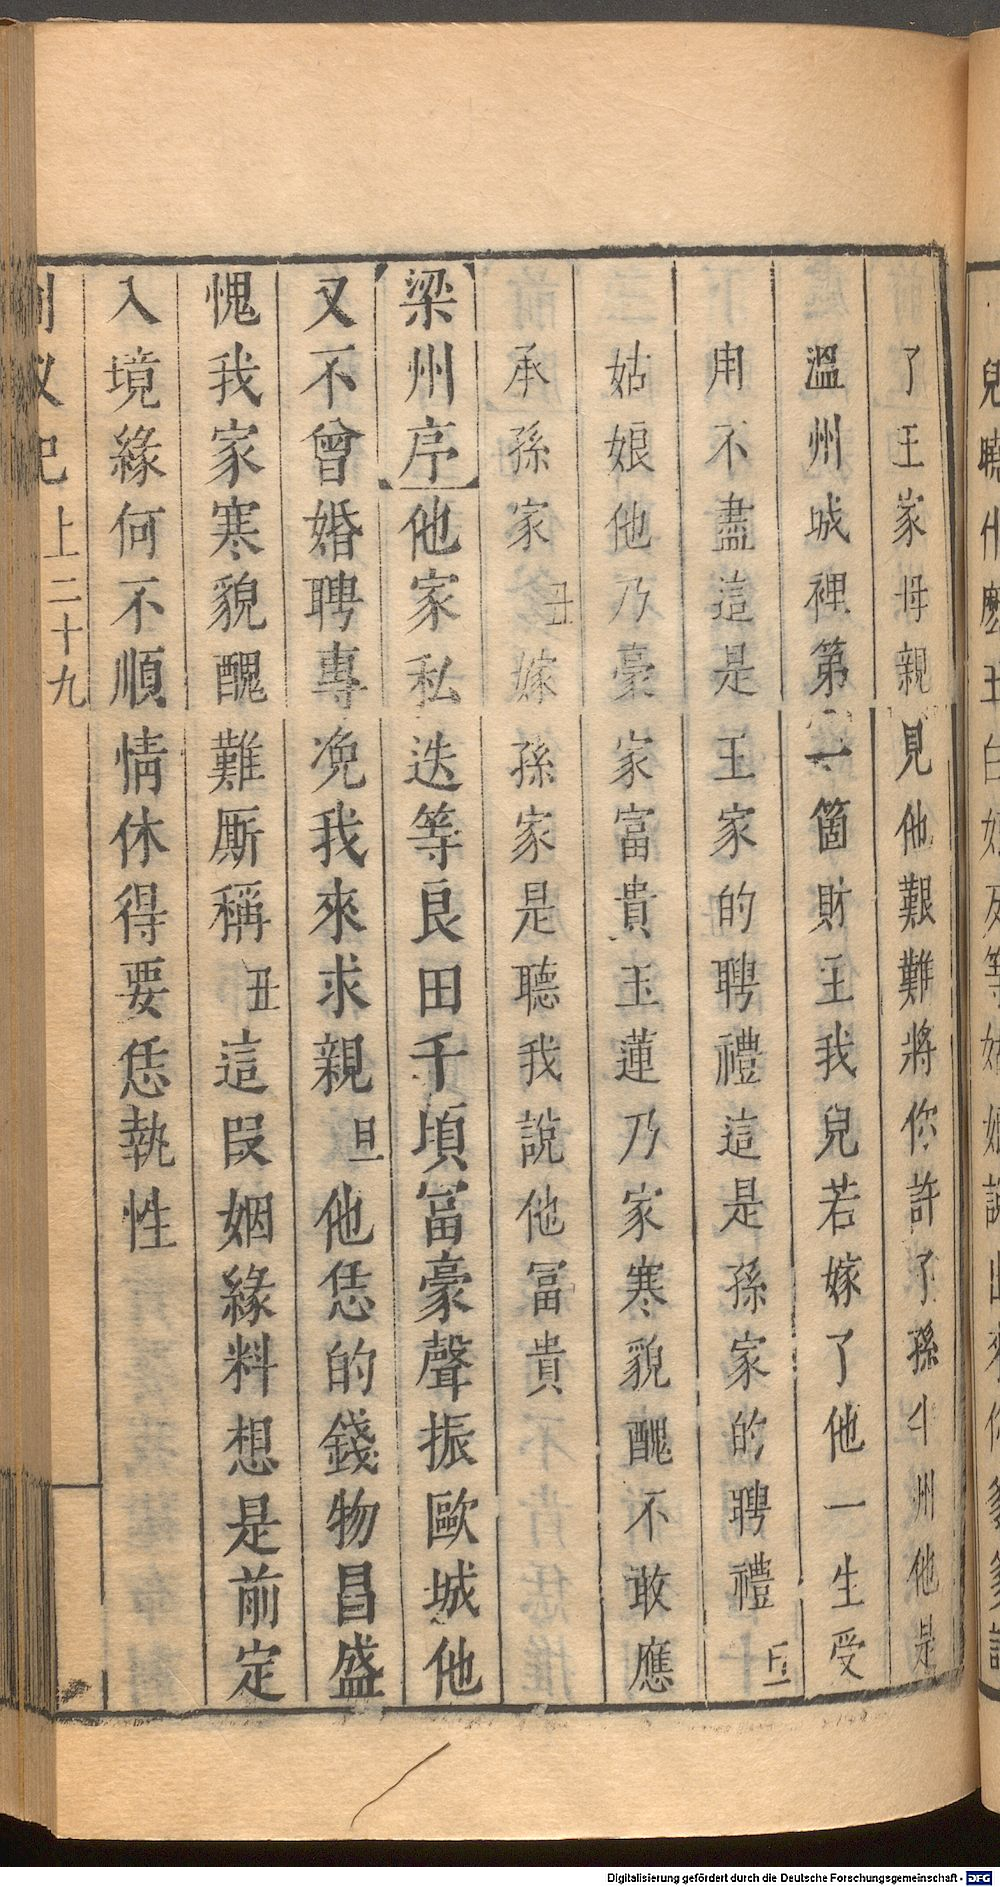 了王家母親見他艱難將你許了孫
州他是
溫州城裡第一箇財主我兒若嫁了他一生受
用不盡這是王家的聘禮這是孫家的聘禮旦
姑娘他乃豪家富貴玉蓮乃家寒貌醜不敢應
承孫家丑嫁孫家是聽我說他冨貴
梁州序他家私迭等良田千頃冨豪聲振歐城他
又不曾婚聘專凂我來求親旦他恁的錢物昌盛
愧我家寒貌醜難厮稱丑這段姻緣料想是前定
入境緣何不順情休得要恁執性
上二十九
Digitalisierung gefördert durch die Deutsche Forschungsgemeinschaft - DFG